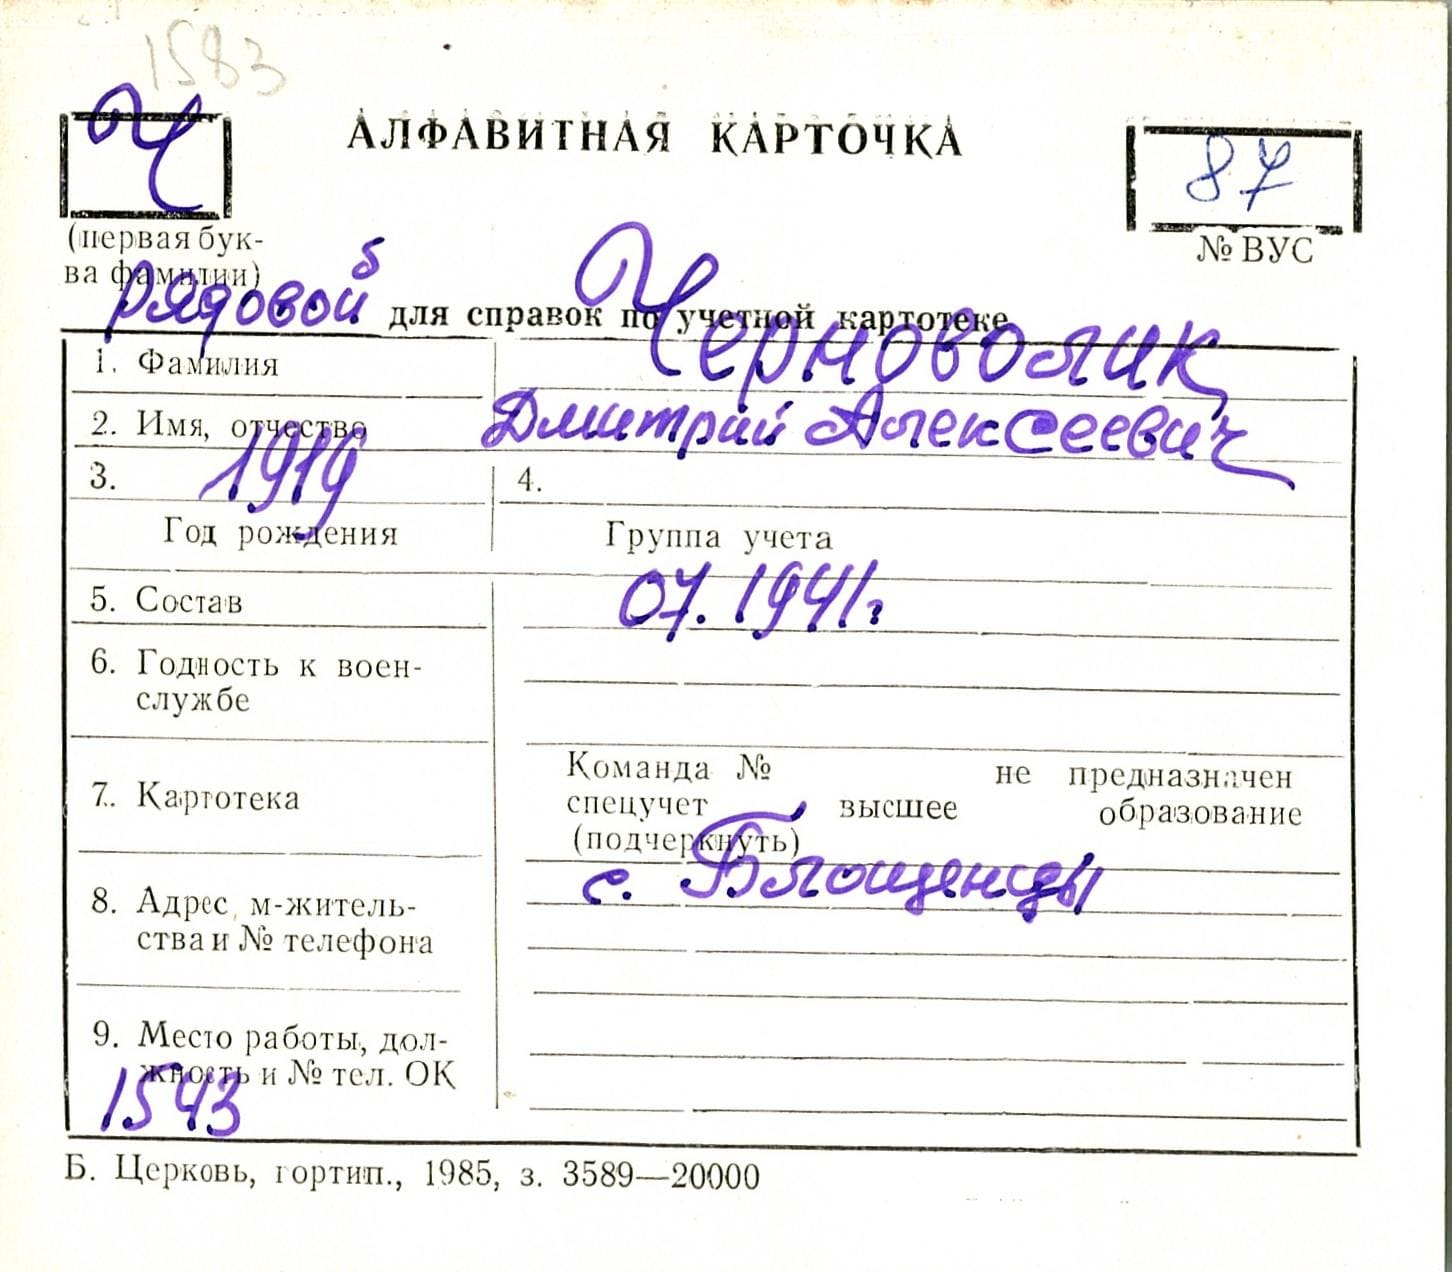 1583
Ч
АЛФАВИТНАЯ КАРТОЧКА
87
(первая бук-
ва фамилии)
№ ВУС
б
рядовой
для справок по учетной картотеке
1. Фамилия Черноволик
2. Имя, отчество Дмитрий Алексеевич
3. 1919 4.
Год рождения Группа учета
5. Состав 07.1941г
6. Годность к воен-
службе
7. Картотека
Команда № не предназначен
спецучет высшее образование
(подчеркнуть)
8. Адрес, м-житель-
ства и № телефона
с.
9. Место работы, дол-
жность и № тел. ОК
1543
Б. Церковь, гортип., 1985, з. 3589—20000